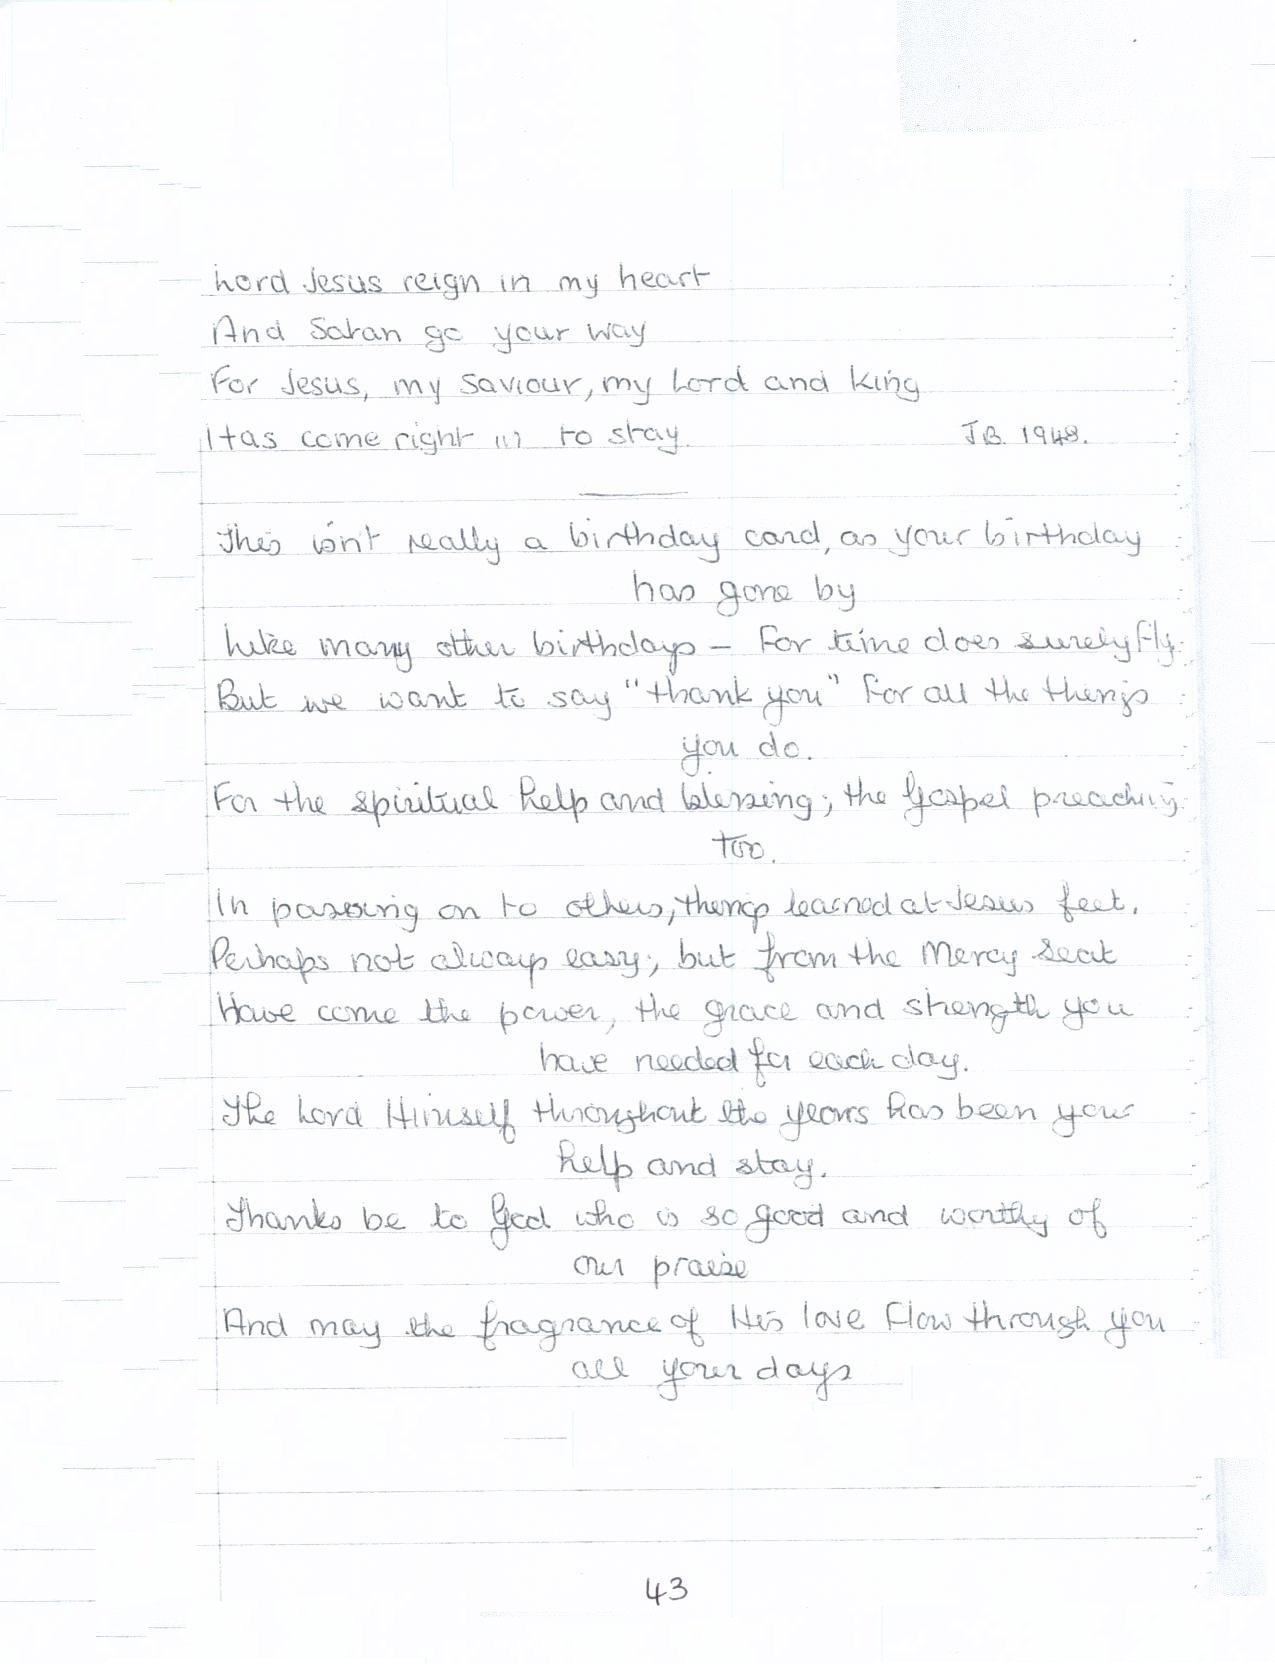 Lord Jesus reign in my heart
And Satan go your way
For Jesus, my Saviour, my Lord and King
Has come right in to stay. J.B. 1948.
This isn't really a birthday card, as your birthday
has gone by
Like many other birthdays – For time does surely fly.
But we want to say "thank you" for all the things
you do.
For the spiritual help and blessing; the Gospel preaching
too.
In passing on to others, things learned at Jesus feet.
Perhaps not always easy; but from the Mercy Seat
Have come the power, the grace and strength you
have needed for each day.
The Lord Himself throughout the years has been your
help and stay.
Thanks be to God who is so good and worthy of
our praise
And may the fragrance of His love Flow through you
all your days
43